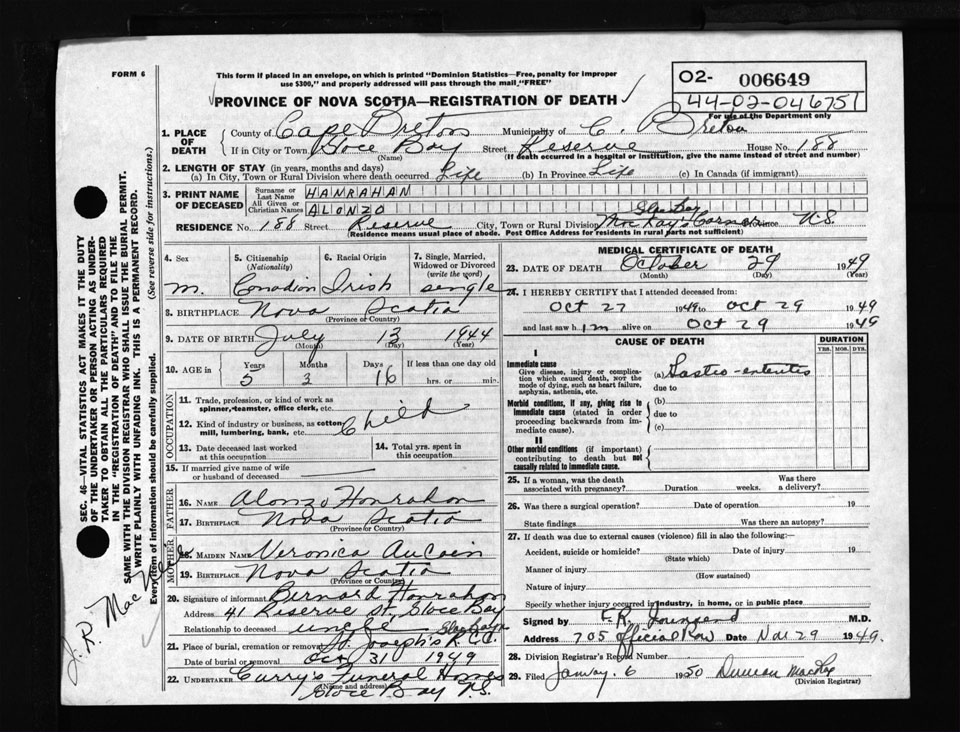 FORM 6
This form if placed in an envelope, on which is printed "Dominion Statistics—Free, penalty for improper
use $300," and properly addressed will pass through the mail "FREE"
O2- 006649
44-02-046751
For use of the Department only
PROVINCE OF NOVA SCOTIA—REGISTRATION OF DEATH
1. PLACE OF DEATH
County of Cape Breton Municipality of C. Breton
If in City or Town Glace Bay Street Reserve House No. 188
(Name) (If death occurred in a hospital or institution, give the name instead of street and number)
2. LENGTH OF STAY (in years, months and days)
(a) In City, Town or Rural Division where death occurred Life (b) In Province Life (c) In Canada (if immigrant)
3. PRINT NAME OF DECEASED
Surname or Last Name HANRAHAN
All Given or Christian Names ALONZO
Glace Bay
RESIDENCE No. 188 Street Reserve City, Town or Rural Division MacKay's Corner Province N.S.
(Residence means usual place of abode. Post Office Address for residents in rural parts not sufficient)
4. Sex
m.
5. Citizenship (Nationality)
Canadian
6. Racial Origin
Irish
7. Single, Married, Widowed or Divorced (write the word)
single
8. BIRTHPLACE Nova Scotia
(Province or Country)
9. DATE OF BIRTH July 13 1944
(Month) (Day) (Year)
10. AGE in Years Months Days If less than one day old
5 3 16 hrs. or min.
OCCUPATION
11. Trade, profession, or kind of work as
spinner, teamster, office clerk, etc.
12. Kind of industry or business, as cotton
mill, lumbering, bank, etc. Child
13. Date deceased last worked
at this occupation
14. Total yrs. spent in
this occupation
15. If married give name of wife
or husband of deceased
FATHER
16. NAME Alonzo Hanrahan
17. BIRTHPLACE Nova Scotia
(Province or Country)
MOTHER
18. MAIDEN NAME Veronica AuCoin
19. BIRTHPLACE Nova Scotia
(Province or Country)
20. Signature of informant Bernard Hanrahan
Address 41 Reserve St. Glace Bay
Relationship to deceased uncle
21. Place of burial, cremation or removal St. Joseph's R.C.C. Glace Bay
Date of burial or removal Oct 31 1949
22. UNDERTAKER Curry's Funeral Home
(Name and address) Glace Bay N.S.
MEDICAL CERTIFICATE OF DEATH
23. DATE OF DEATH October 29 1949
(Month) (Day) (Year)
24. I HEREBY CERTIFY that I attended deceased from:
Oct 27 1949 to Oct 29 1949
and last saw him alive on Oct 29 1949
CAUSE OF DEATH
DURATION
YRS. MOS. DYS.
I
Immediate cause
Give disease, injury or complication which caused death, not the mode of dying, such as heart failure, asphyxia, asthenia, etc.
(a) Gastro-enteritis
due to
Morbid conditions, if any, giving rise to immediate cause (stated in order proceeding backwards from immediate cause).
(b)
due to
(c)
II
Other morbid conditions (if important) contributing to death but not causally related to immediate cause.
25. If a woman, was the death
associated with pregnancy? Duration weeks. Was there a delivery?
26. Was there a surgical operation? Date of operation 19
State findings Was there an autopsy?
27. If death was due to external causes (violence) fill in also the following:—
Accident, suicide or homicide? Date of injury 19
(State which)
Manner of injury
(How sustained)
Nature of injury
Specify whether injury occurred in industry, in home, or in public place
Signed by M.D.
Address 705 Official Row Date Nov 29 1949.
28. Division Registrar's Record Number
29. Filed January 6 1950 Duncan
(Division Registrar)
SEC. 46—VITAL STATISTICS ACT MAKES IT THE DUTY
OF THE UNDERTAKER OR PERSON ACTING AS UNDER-
TAKER TO OBTAIN ALL THE PARTICULARS REQUIRED
IN THE "REGISTRATION OF DEATH" AND TO FILE THE
SAME WITH THE DIVISION REGISTRAR WHO SHALL ISSUE THE BURIAL PERMIT.
WRITE PLAINLY WITH UNFADING INK. THIS IS A PERMANENT RECORD.
Every item of information should be carefully supplied. (See reverse side for instructions.)
J. R.